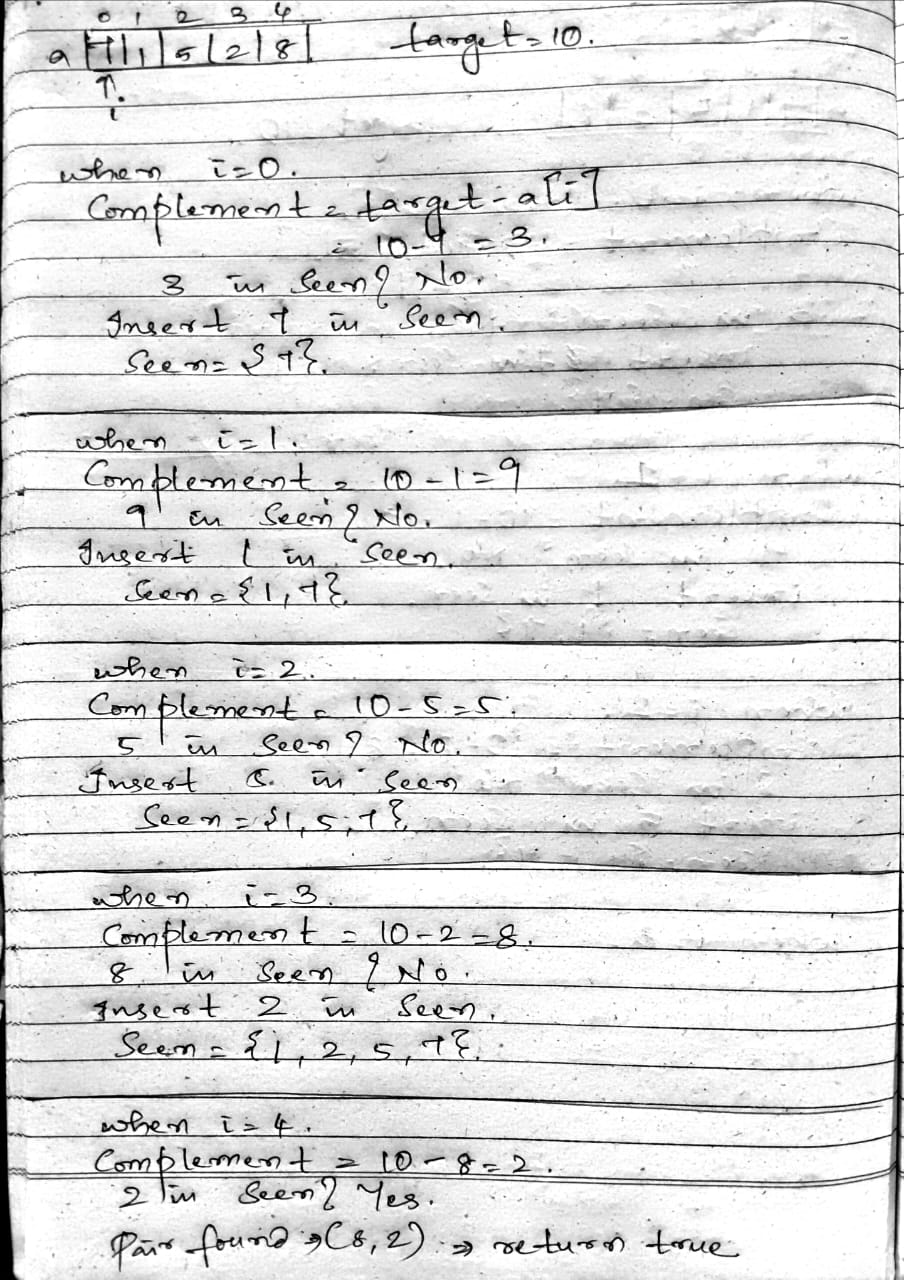 0 1 2 3 4
a 7 | 1 | 5 | 2 | 8 | target = 10.
↑
i
when i=0.
Complement = target - a[i]
= 10-7 = 3.
3 in Seen? No.
Insert 7 in Seen.
Seen = {7}.
when i=1.
Complement = 10-1=9
9 in Seen? No.
Insert 1 in Seen.
Seen = {1,7}.
when i=2.
Complement = 10-5=5.
5 in Seen? No.
Insert 5. in Seen
Seen = {1,5,7}.
when i=3.
Complement = 10-2=8.
8 in Seen? No.
Insert 2 in Seen.
Seen = {1,2,5,7}.
when i=4.
Complement = 10-8=2.
2 in Seen? Yes.
Pair found → (8,2) → return true